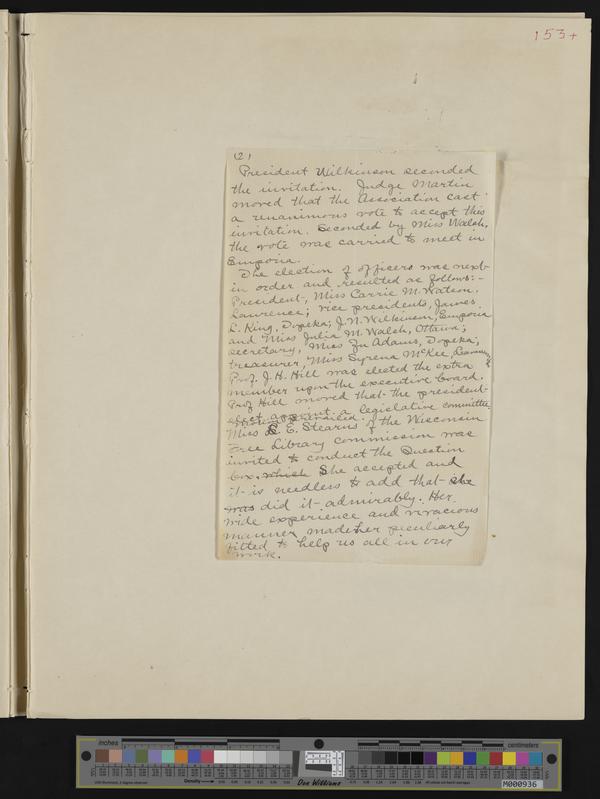 153+
(2)
President Wilkinson seconded
the invitation. Judge Martin
moved that the Association cast
a renanimous vote to accept this
invitation. Seconded by Miss Walsh,
the vote was carried to meet in
Emporia.
The election of officers was next
in order and resulted as follows:-
President, Miss Carrie M. Watson,
Lawrence; vice presidents, James
L. King, Topeka; J.N. Wilkinson, Emporia
and Miss Julia M. Walsh, Ottawa;
secretary, Miss Zu Adams, Topeka;
treasurer, Miss Syrena McKee,
Prof. J. H. Hill was elected the extra
member upon the executive board.
Prof Hill moved that the president-
elect appoint a legislative committee.
Motion prevailed.
Miss L. E. Stearns of the Wisconsin
Free Library commission was
invited to conduct the Question
box. which She accepted and
it is needless to add that she
was did it admirably. Her
wide experience and vivacious
manner made her peculiarly
fitted to help us all in our
work.
inches
centimeters
Density
Don Williams
M000936